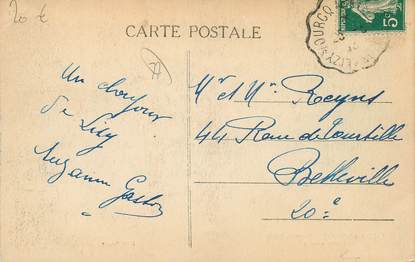 20 €
CARTE POSTALE
5c
LIZY-S-OURCQ
Un bonjour
de Lizy
Suzanne Gaston
Mr et Mme Reyns
44 Rue de Tourtille
Belleville
20e